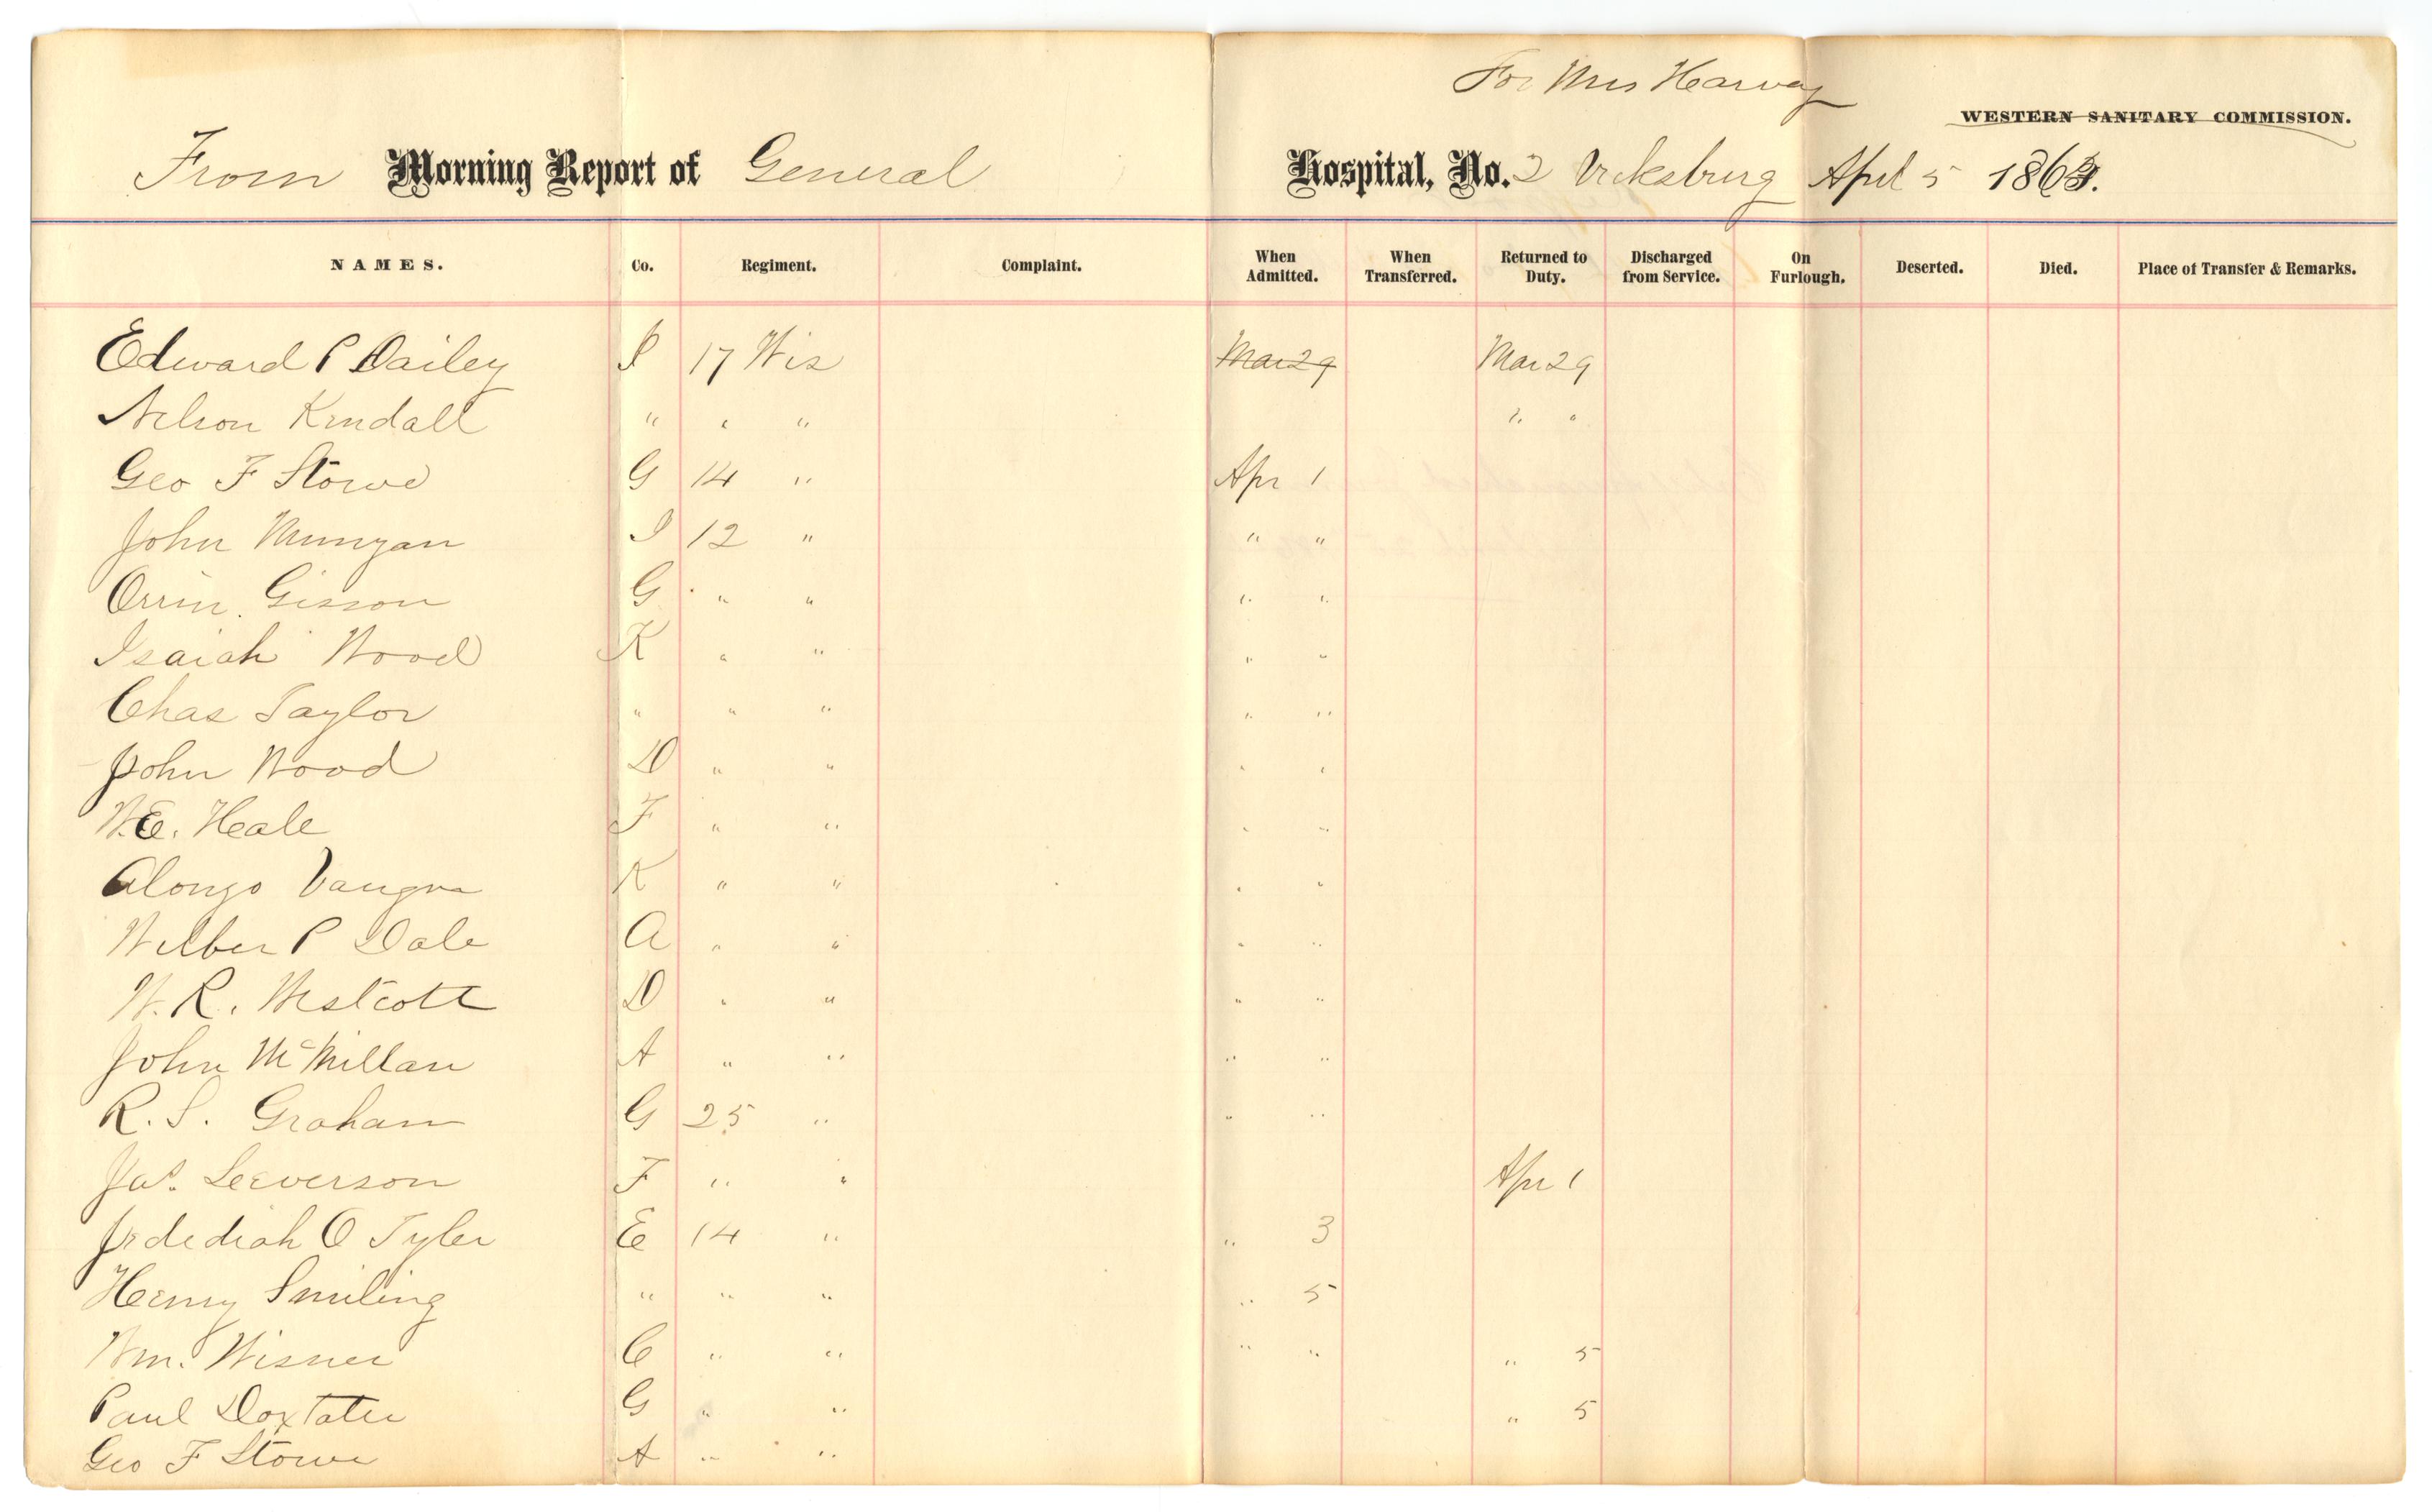 For Mrs Harvey
WESTERN SANITARY COMMISSION.
From Morning Report of General Hospital, No. 2 Vicksburg April 5 186
NAMES. Co. Regiment. Complaint. When Admitted. When Transferred. Returned to Duty. Discharged from Service. On Furlough. Deserted. Died. Place of Transfer & Remarks.
Edward P Dailey I 17 Wis Mar 29 Mar 29
Nelson Kendall " " " " "
Geo F Stowe G 14 " Apr 1
John Munyan I 12 " " "
Orrin Gisson G " " " "
Isaiah Wood K " " " "
Chas Taylor " " " " "
John Wood D " " " "
W.E. Heale F " " " "
Alonzo K " " " "
Wilber P Dale A " " " "
W. R. Westcott D " " " "
John McMillan A " " " "
R. S. Graham G 25 " " "
Jas. Leeverson F " " Apr 1
Jedediah O Tyler E 14 " " 3
Henry Smiling " " " " 5
Wm. Wisner C " " " " " 5
Paul Doxtater G " " " 5
Geo F Stowe A " "